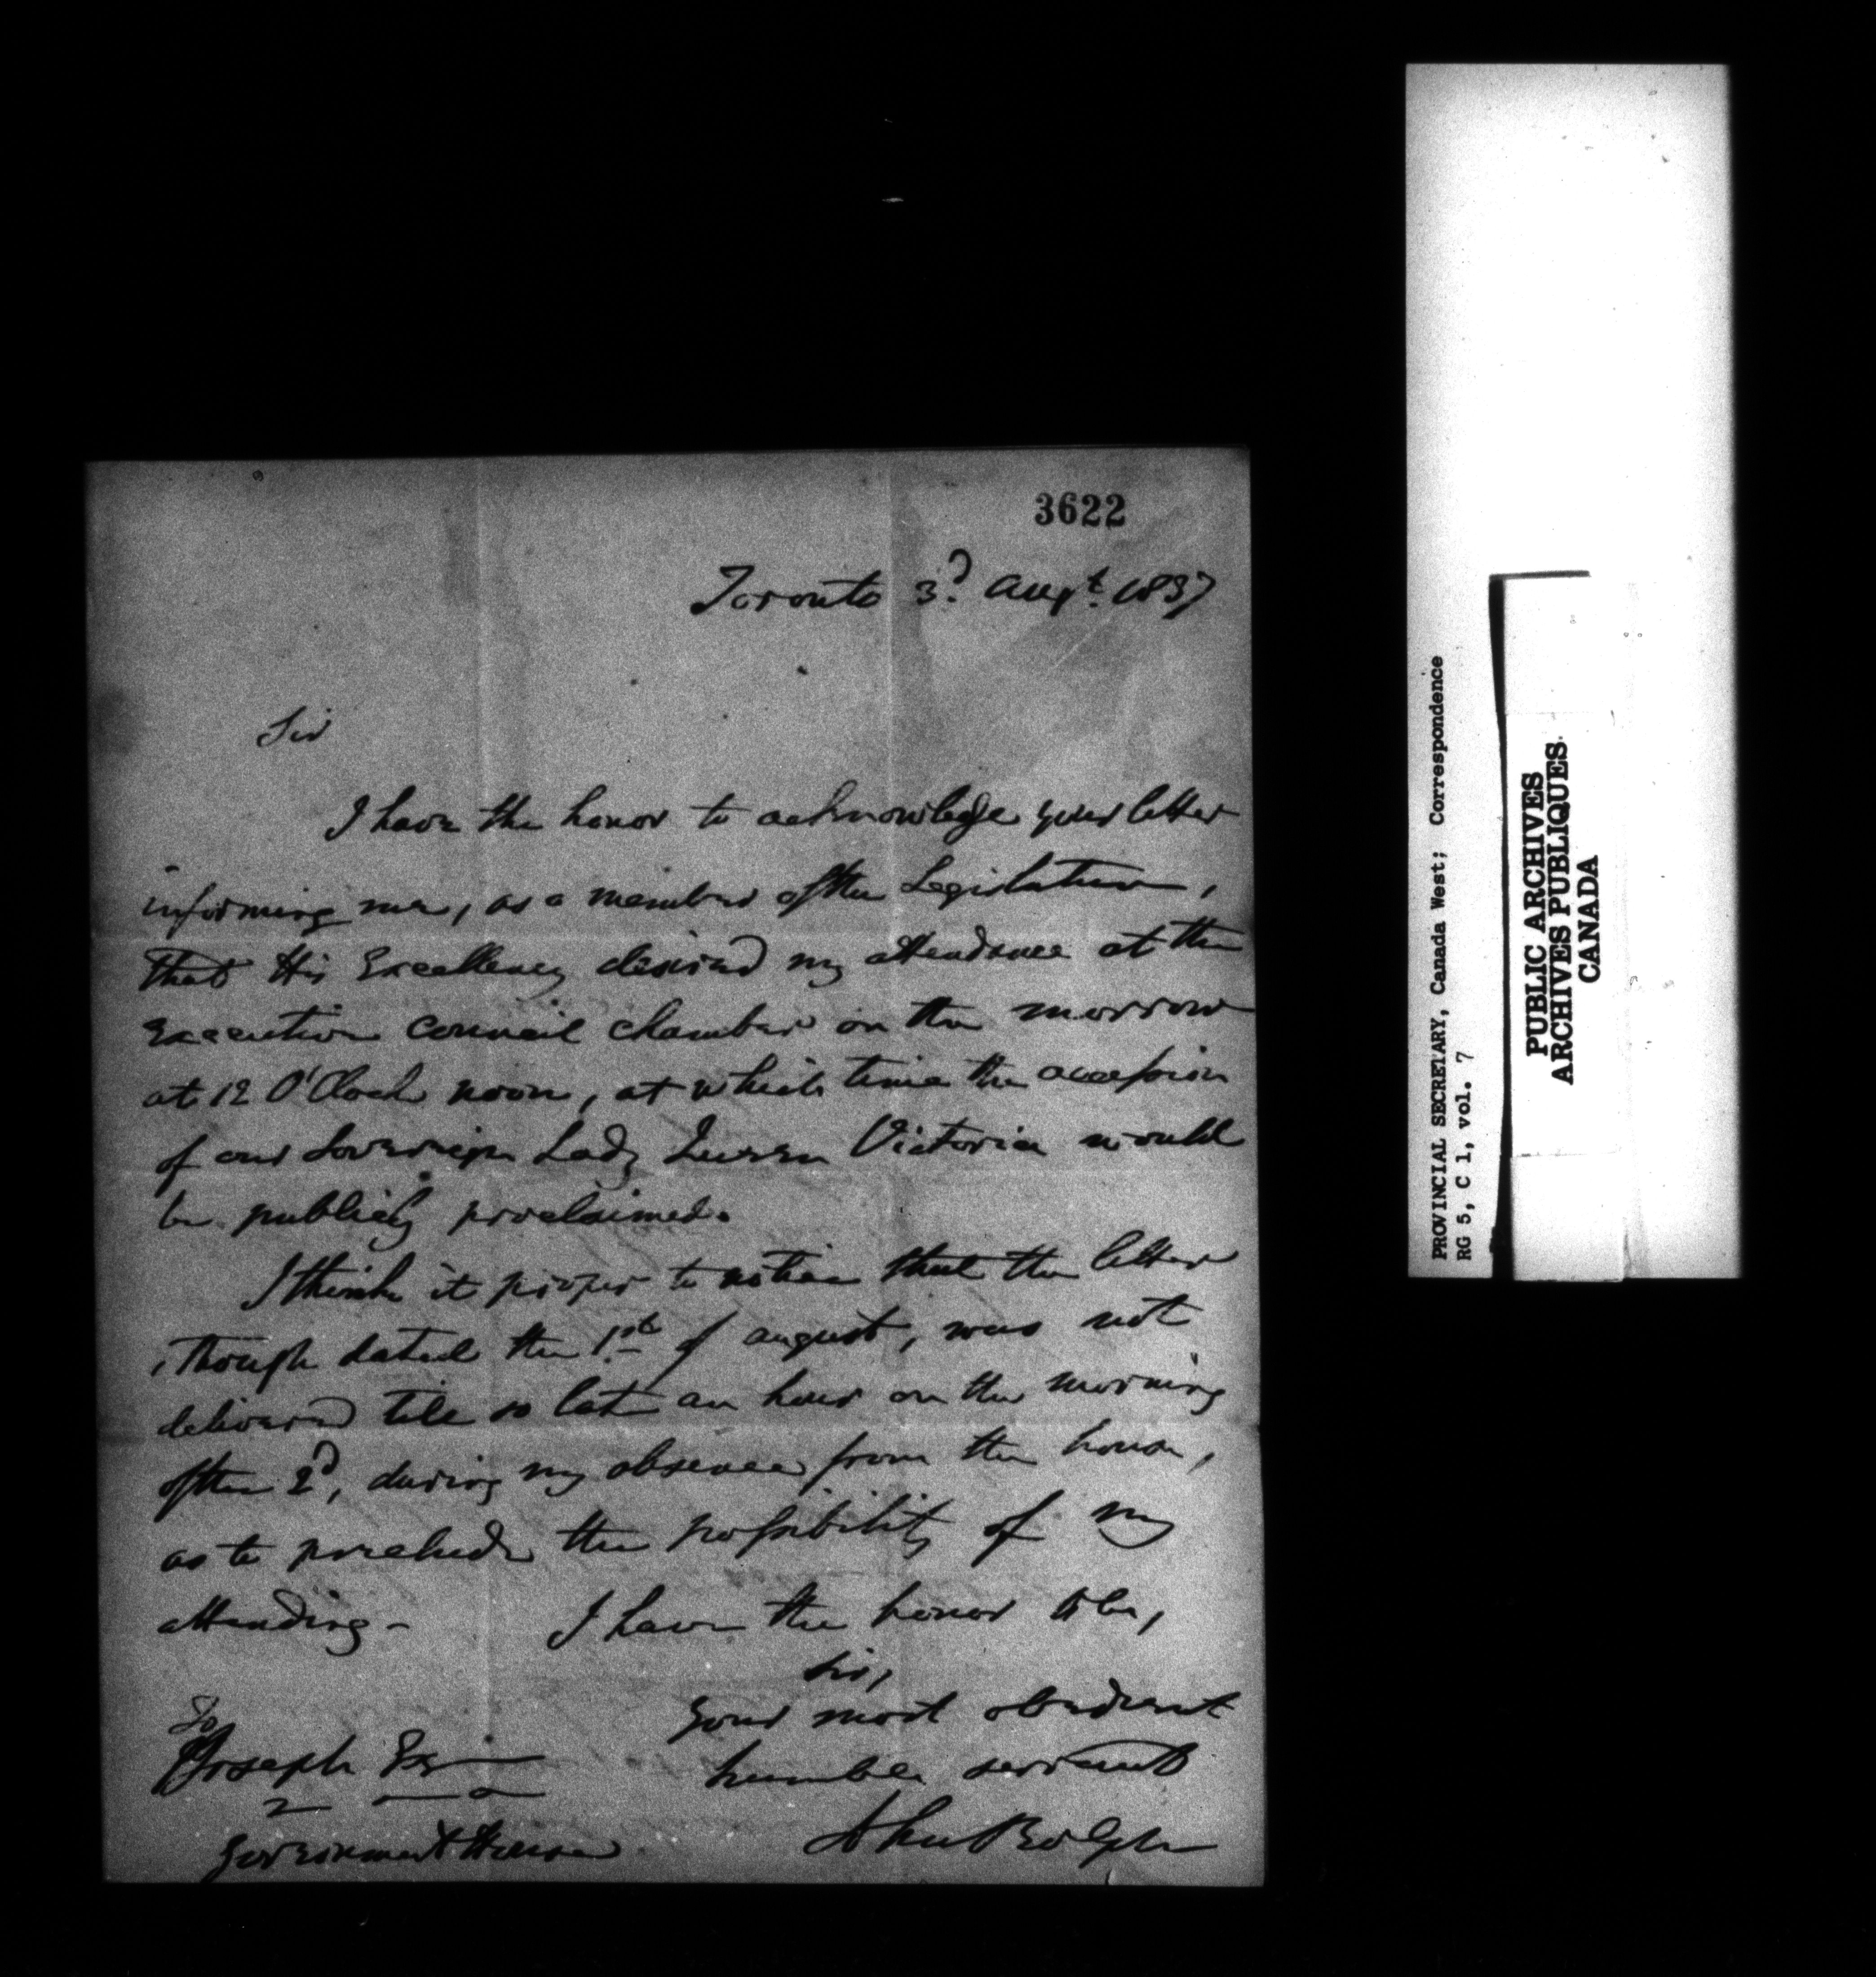 3622
Toronto 3d Augt. 1837
Sir
I have the honor to acknowledge your letter
informing me, as a member of the Legislature,
that His Excellency desired my attendance at the
Executive Council chamber on the morrow
at 12 O'Clock noon, at which time the accession
of our Sovereign Lady Queen Victoria would
be publicly proclaimed.
I think it proper to notice that the letter
, though dated the 1st of August, was not
delivered till so late an hour on the morning
of the 2d, during my absence from the house,
as to preclude the possibility of my
attending-
I have the honor to be,
Sir,
Your most obedient
humble servant
John Rolph
To
Joseph Esq
Government House
PROVINCIAL SECRETARY, Canada West; Correspondence
RG 5, C 1, vol. 7
PUBLIC ARCHIVES
ARCHIVES PUBLIQUES
CANADA